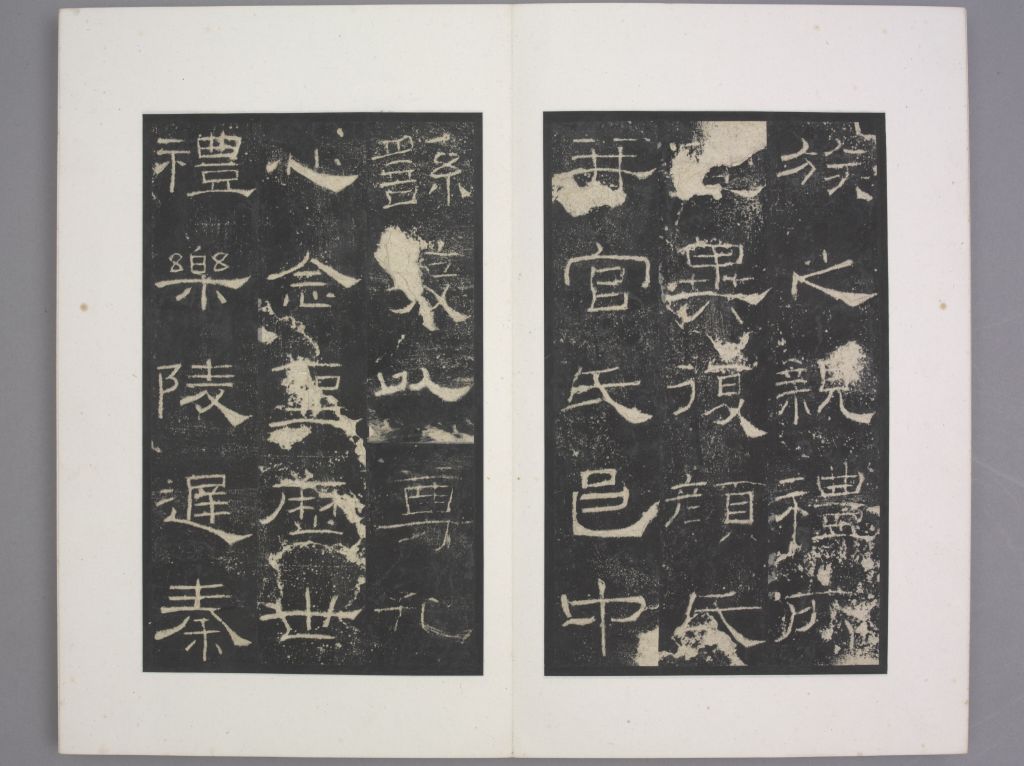 族之親禮所
宜異復顏氏
并官氏邑中
繇發以尊孔
心念聖歷世
禮樂陵遲秦